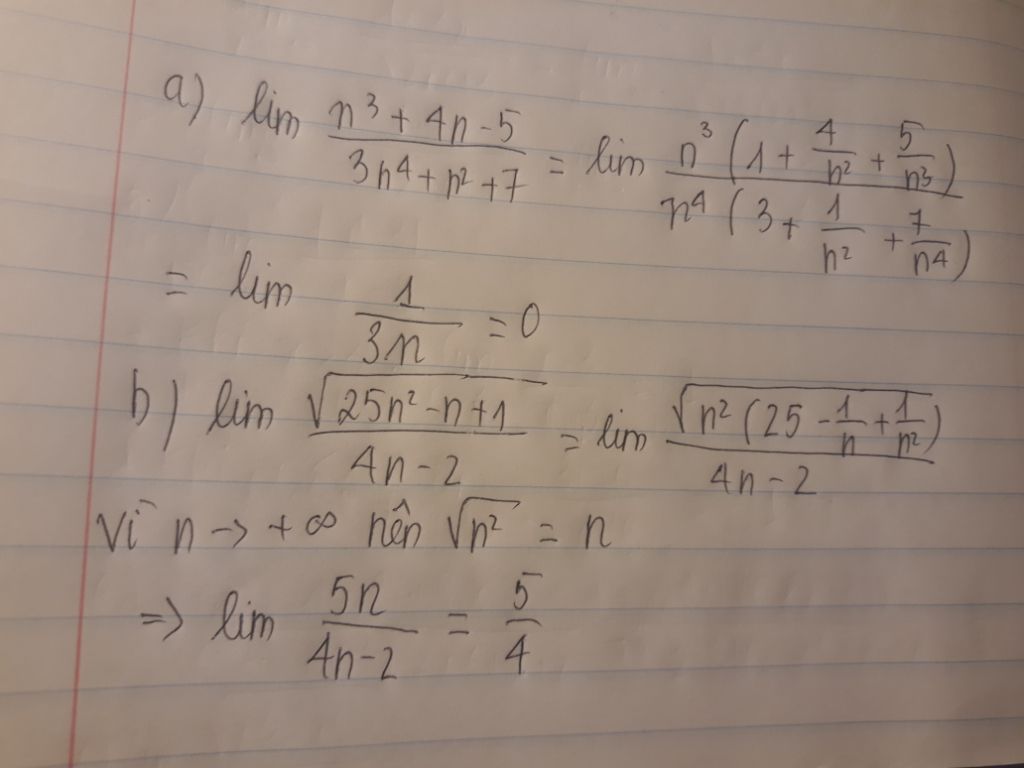 a) lim (n³ + 4n - 5)/(3n⁴ + n² + 7) = lim (n³ (1 + 4/n² + 5/n³))/(n⁴ (3 + 1/n² + 7/n⁴))
= lim 1/(3n) = 0
b) lim √(25n² - n + 1)/(4n - 2) = lim √(n² (25 - 1/n + 1/n²))/(4n - 2)
Vì n → +∞ nên √(n²) = n
⇒ lim 5n/(4n - 2) = 5/4